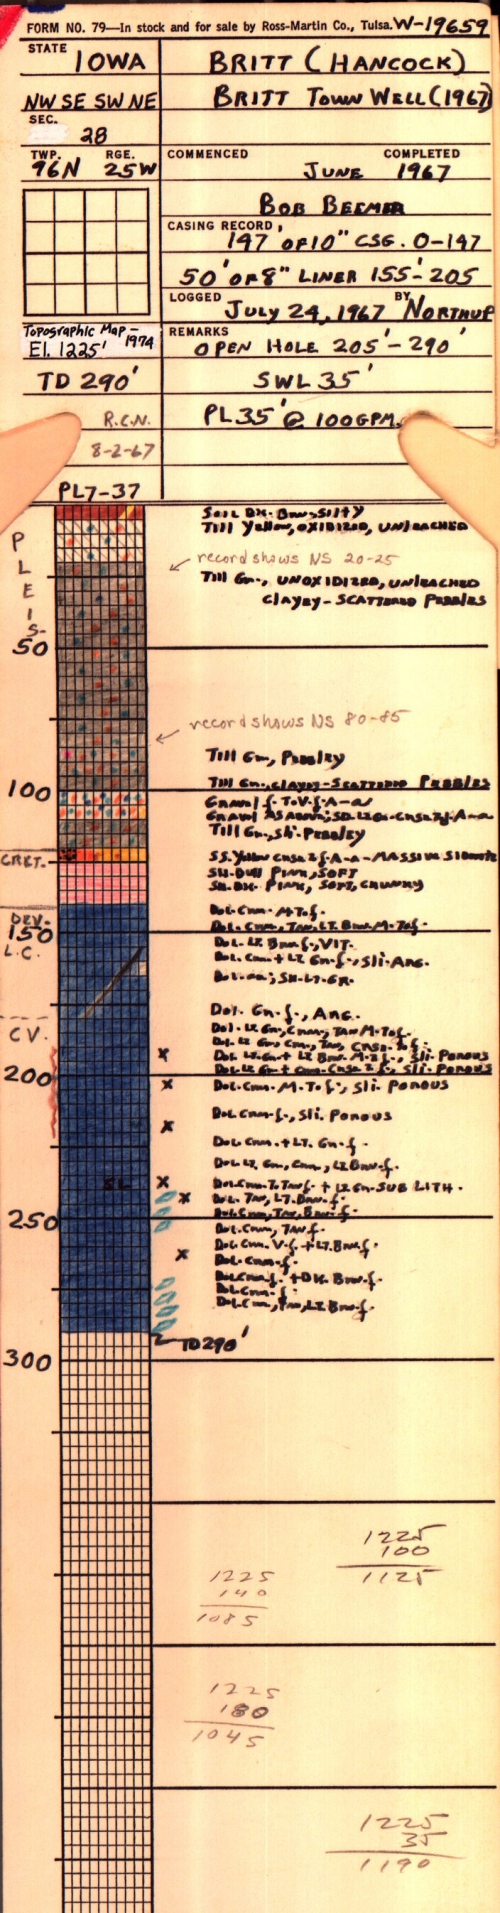 FORM NO. 79—In stock and for sale by Ross-Martin Co., Tulsa. W-19659
STATE IOWA
BRITT (HANCOCK)
NW SE SW NE
BRITT TOWN WELL (1967)
SEC. 28
TWP. 96N RGE. 25W
COMMENCED COMPLETED
JUNE 1967
BOB BEEMER
CASING RECORD
147' OF 10" CSG. 0-147
50' OF 8" LINER 155'-205
LOGGED JULY 24, 1967 BY NORTHUP
Topographic Map - 1974
El. 1225'
REMARKS
OPEN HOLE 205'-290'
TD 290'
SWL 35'
R.C.N.
PL 35' @ 100 GPM.
8-2-67
PL7-37
SOIL DK. BRN-SILTY
TILL YELLOW, OXIDIZED, UNLEACHED
PLEIS.
record shows NS 20-25
TILL GR., UNOXIDIZED, UNLEACHED
CLAYEY-SCATTERED PEBBLES
50
record shows NS 80-85
TILL GR., PEBBLEY
TILL GR., CLAYEY-SCATTERED PEBBLES
100
GRAVEL f. TO V.f. A-a
TILL GR., Sli. PEBBLEY
CRET.
SS. YELLOW CRSE Z f. A-a-MASSIVE SIDERITE
SH-DULL PINK, SOFT
SH. DK. PINK, SOFT, CHUNKY
DEV.
DOL. CRM. M.TO f.
DOL. CRM., TAN, LT. BRN. M. TO f.
150
L.C.
DOL. LT. BRN. f., VIT.
DOL. CRM. + LT GR. f., Sli. ARG.
DOL. aa; SH-LT-GR.
DOL. GR. f., ARG.
CV.
DOL. LT GR., CRM., TAN M. TO f.
DOL. LT GR., CRM., TAN, CRSE. TO f.
DOL. LT. GR + LT BRN. M. Z f., Sli. POROUS
DOL. LT GR + CRM. CRSE Z f., Sli. POROUS
200
DOL. CRM. M. TO f., Sli. POROUS
DOL. CRM. f., Sli. POROUS
DOL. CRM. + LT. GR. f.
DOL. LT. GR., CRM., LT BRN. f.
SL
DOL. CRM. T. TAN f. + LT GR. SUB LITH.
DOL. TAN, LT. BRN. f.
DOL. CRM., TAN, BRN. f.
250
DOL. CRM., TAN f.
DOL. CRM. V. f. + LT. BRN. f.
DOL. CRM. f.
DOL. CRM. f. + DK. BRN. f.
DOL. CRM. f.
DOL. CRM., TAN, LT BRN. f.
TD 290'
300
1225
100
1125
1225
140
1085
1225
180
1045
1225
35
1190